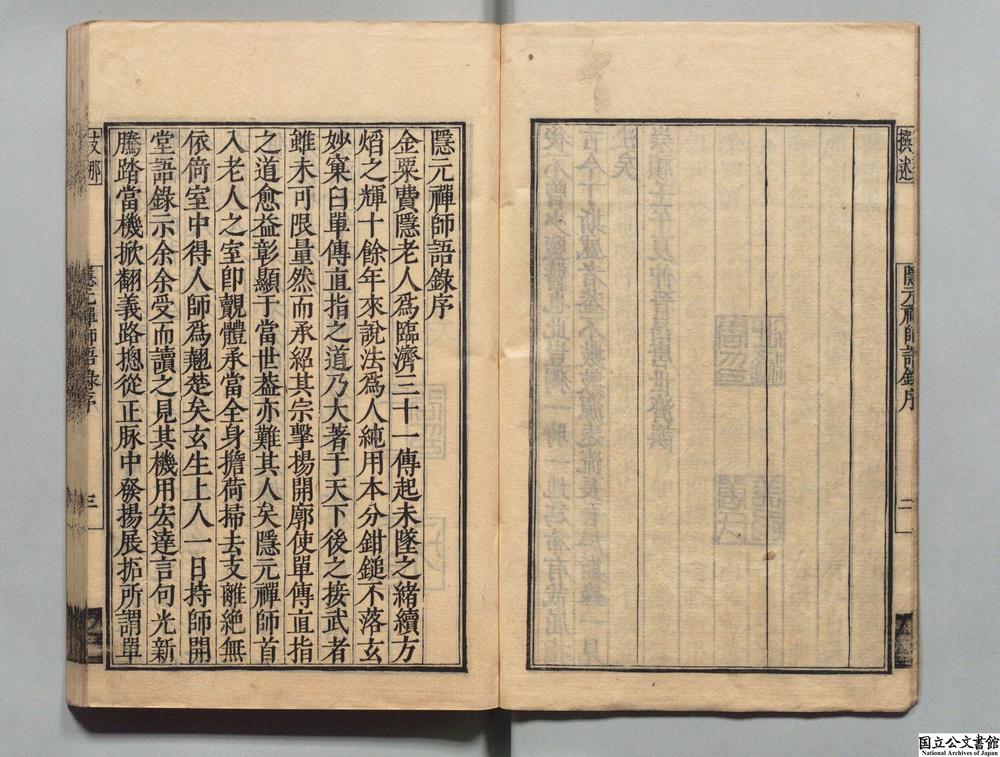 撰述
隱元禪師語錄序
二
隱元禪師語錄序
金粟費隱老人爲臨濟三十一傳起未墜之緒續方
熖之輝十餘年來說法爲人純用本分鉗鎚不落玄
妙窠臼單傳直指之道乃大著于天下後之接武者
雖未可限量然而承紹其宗擊揚開廓使單傳直指
之道愈益彰顯于當世葢亦難其人矣隱元禪師首
入老人之室卽覿體承當全身擔荷掃去支離絕無
依倚室中得人師爲翹楚矣玄生上人一日持師開
堂語錄示余余受而讀之見其機用宏達言句光新
騰踏當機掀翻義路摠從正脉中發揚展拓所謂單
支那
隱元禪師語錄序
三
国立公文書館
National Archives of Japan